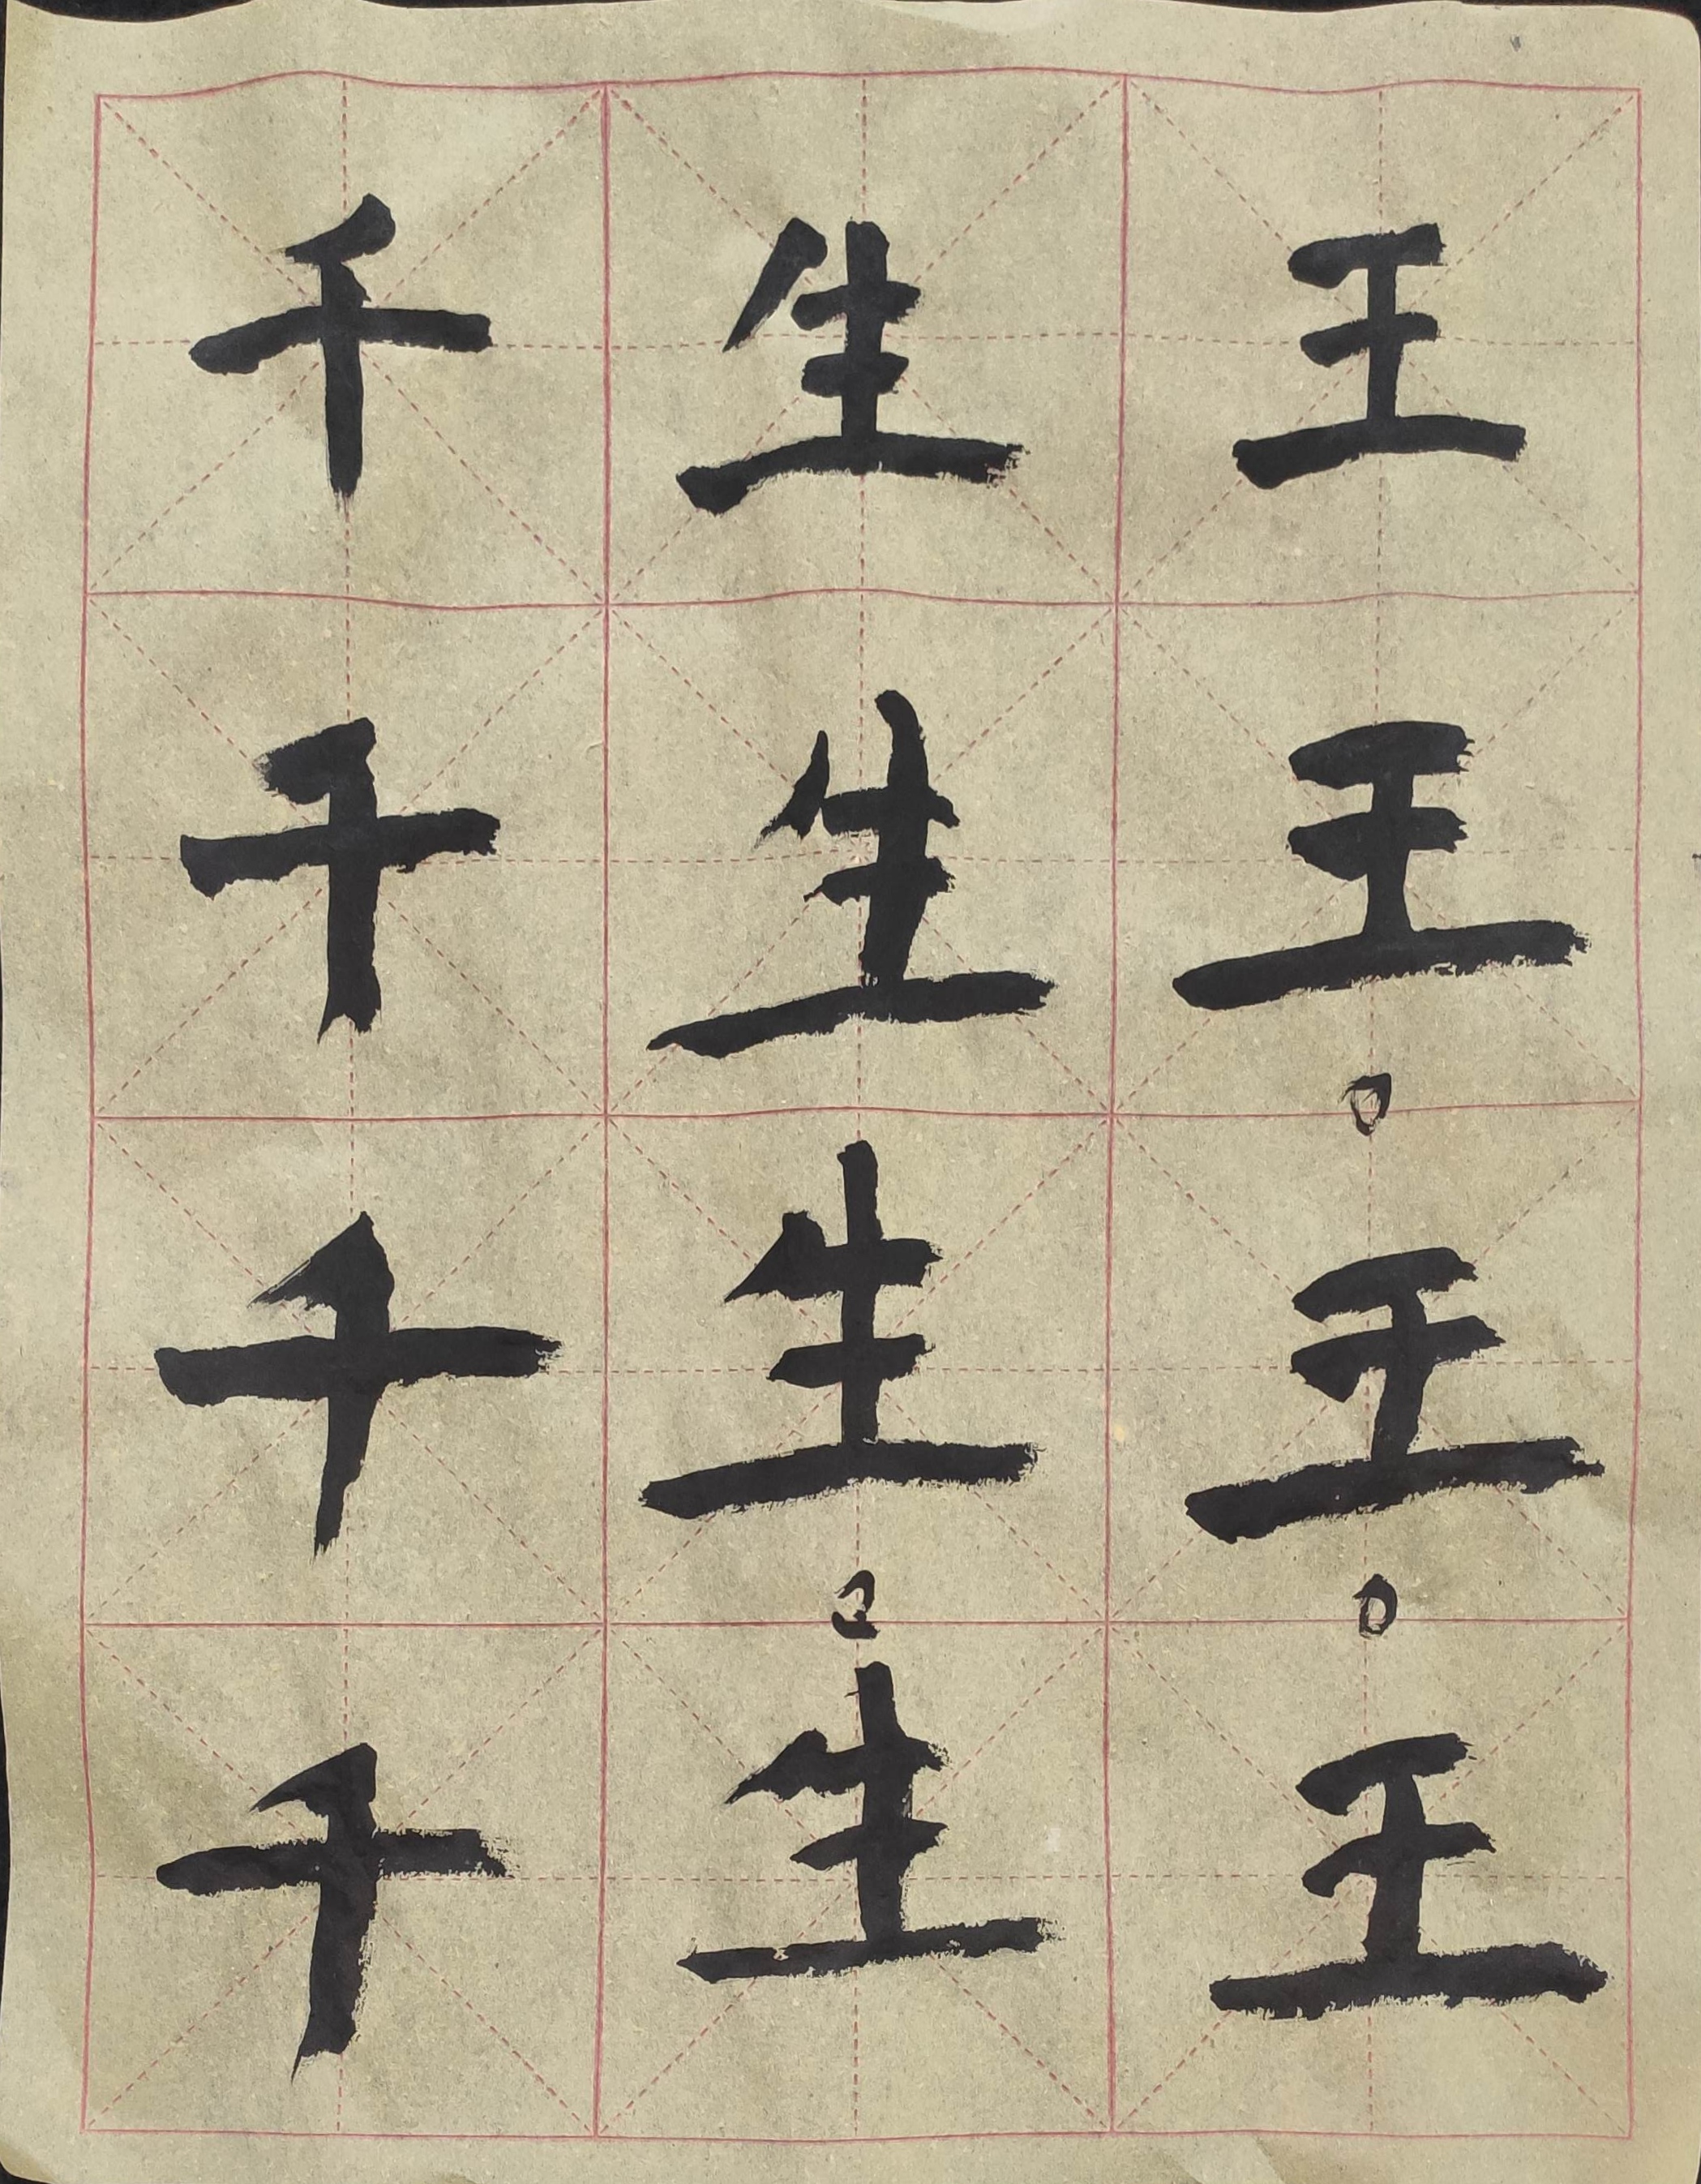 王王王王
生生生生
千千千千